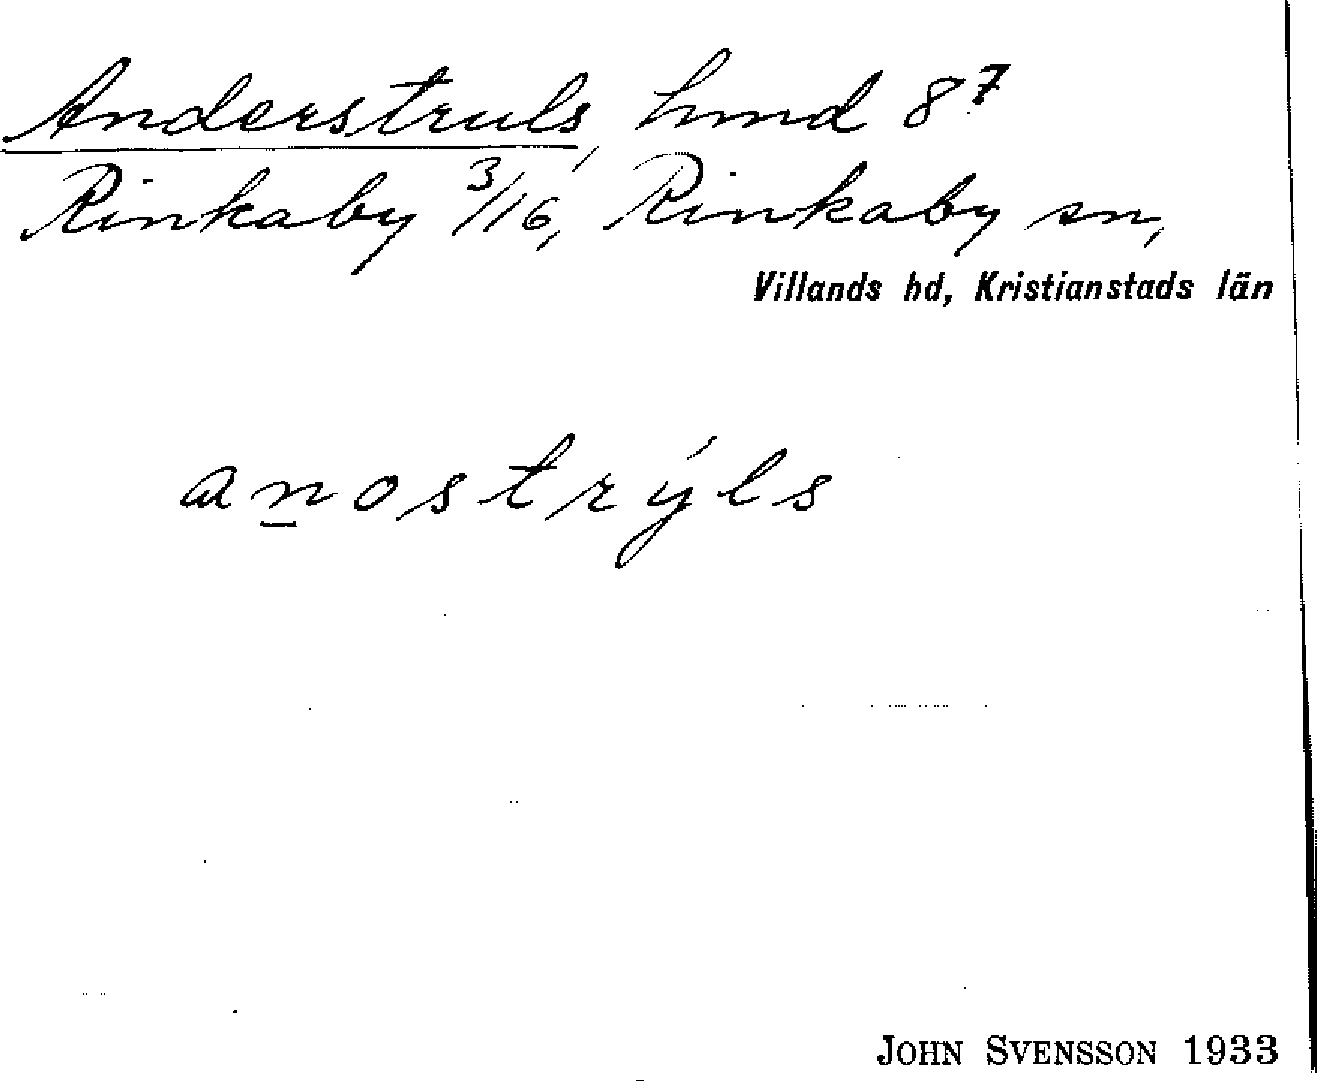 Anderstruls, hmd 8⁷
Rinkaby 3/16, Rinkaby sn,
Villands hd, Kristianstads län
anostrýls
JOHN SVENSSON 1933